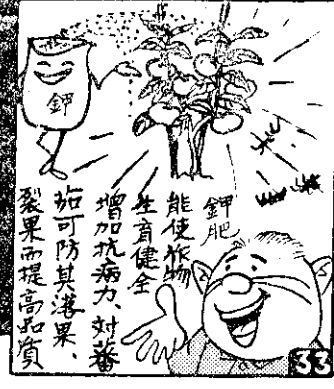 鉀
鉀肥
能使作物
生育健全
增加抗病力、对蕃
茄可防其落果、
裂果而提高品質
33